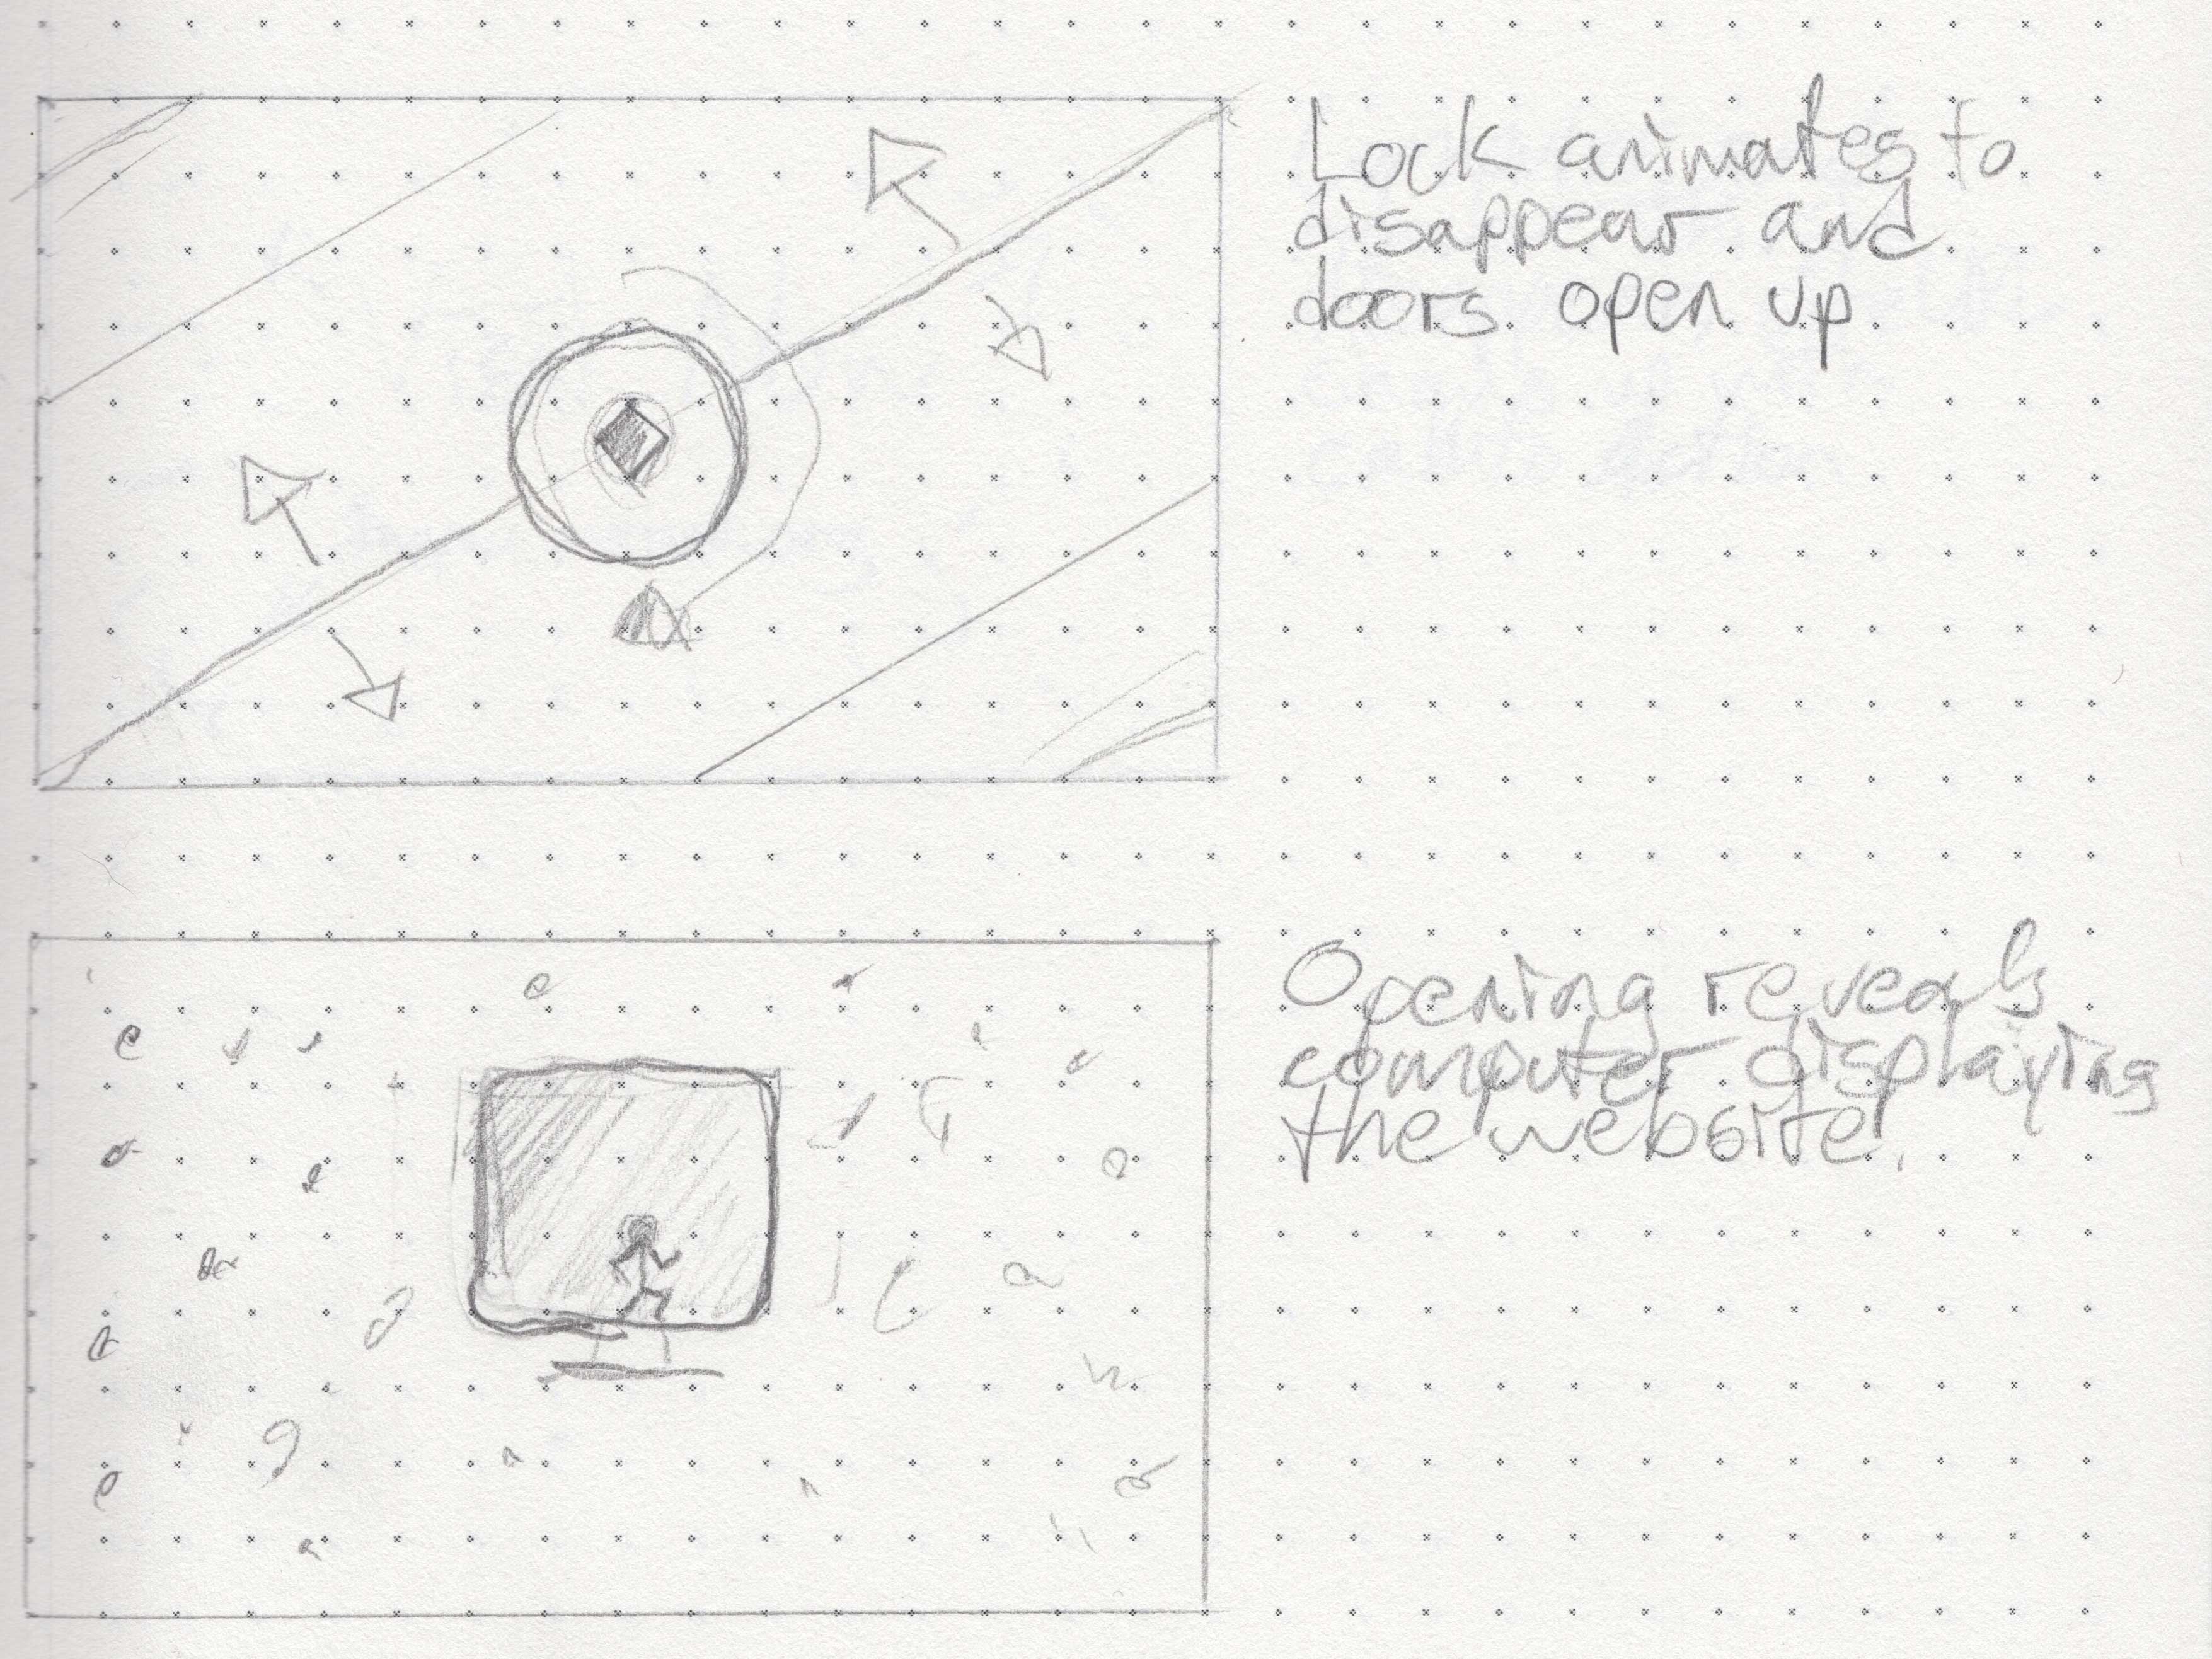 Lock animates to
disappear and
doors open up
Opening reveals
computer displaying
the website.